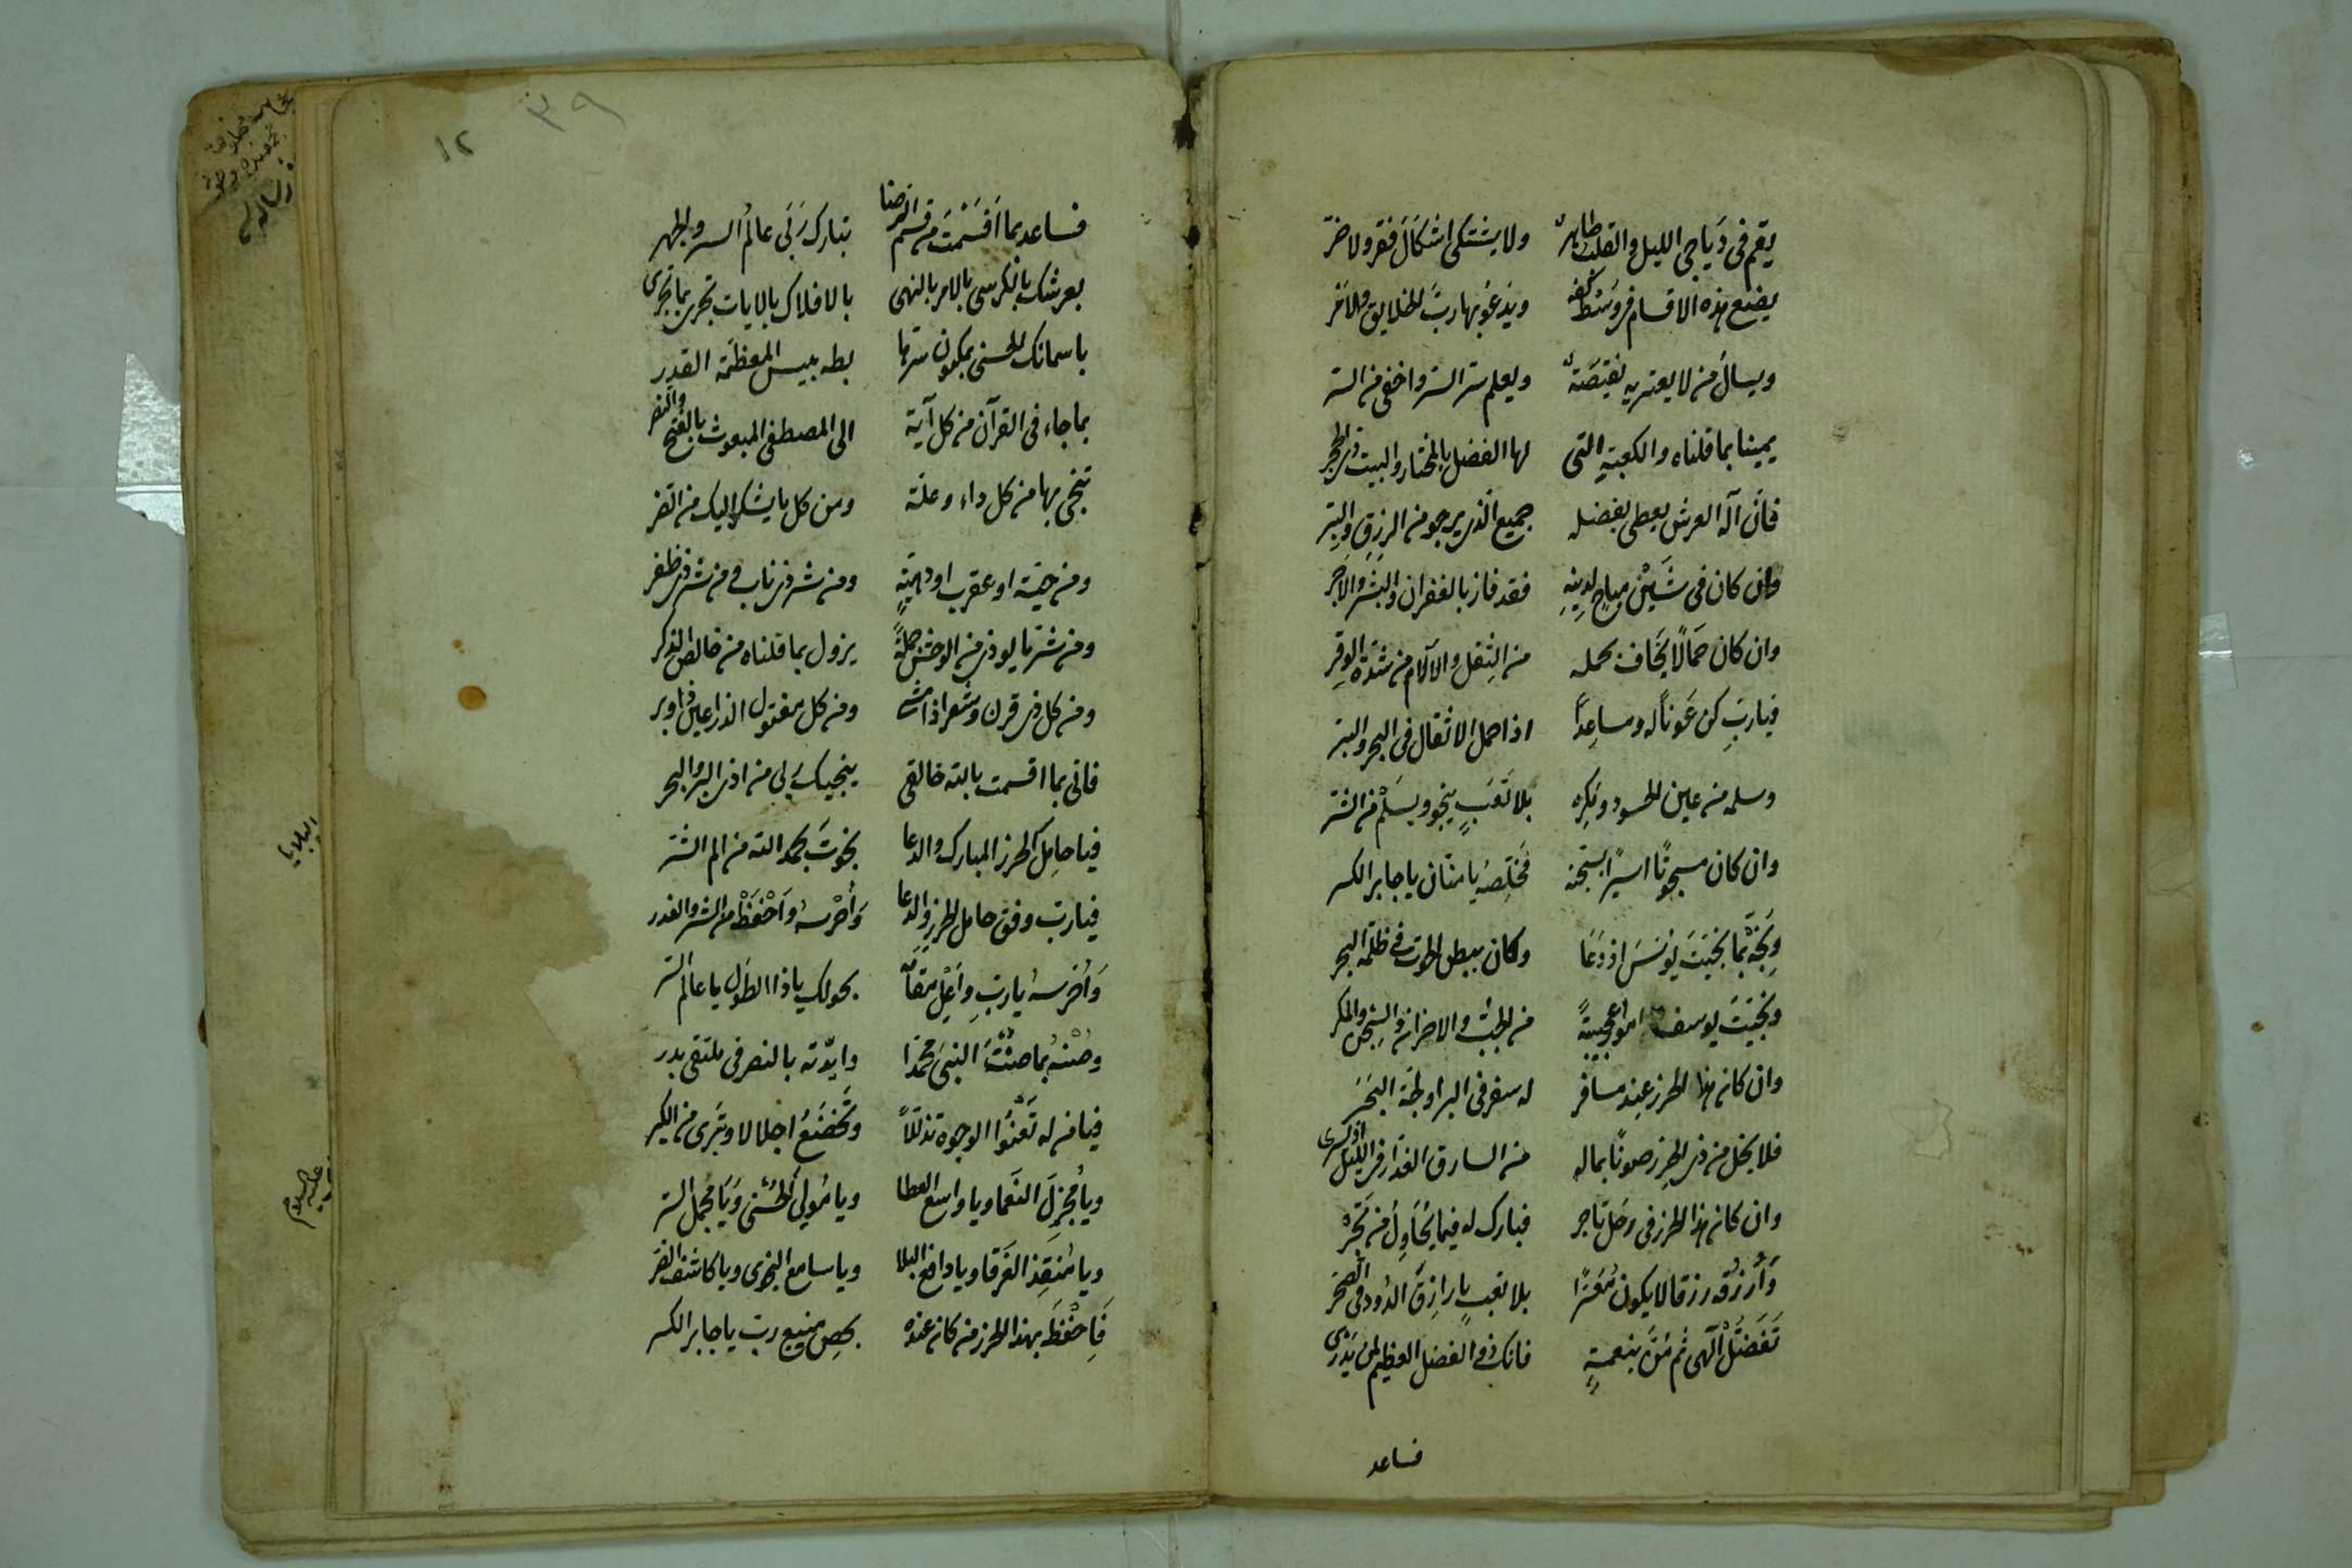 يقم فى دياجى الليل والقلب طاهر ولا يشتكى اشكال فقر ولا ضر
يضع هذه الاقسام فى وسط كفه ويدعو بها رب الخلايق والامر
ويسال من لا يعتريه نقيصة ويعلم سر السر واخفى من السر
يمينا بما قلناه والكعبة التى لها الفضل بالمختار والبيت ذى الحجر
فان اله العرش يعطى بفضله جميع الذى يرجو من الرزق والبر
وان كان فى شين مباح لدينه فقد فاز بالغفران والبشر والاجر
وان كان حمالا يخاف بحمله من الثقل والالام من شدة الوقر
فيارب كن عونا له ومساعدا اذا حمل الاثقال فى البحر والبر
وسلمه من عين الحسود ومكره بلا تعب ينجو ويسلم من الشر
وان كان مسجونا اسيرا بسجنه فخلصه يا منان يا جابر الكسر
ونجه بما نجيت يونس اذ دعا وكان ببطن الحوت فى ظلمة البحر
ونجيت يوسف امورا عجيبة من الجب والاحزان والسجن والمكر
وان كان هذا الحرز عند مسافر له سفر فى البر او لجة البحر
فلا يخل من ذى الحرز صونا بماله من السارق الغدار فى الليل اذ يسرى
وان كان هذا الحرز فى رحل تاجر فبارك له فيما يحاول من تجر
وارزقه رزقا لا يكون معسرا بلا تعب يا رازق الدود فى الصخر
تفضل الهى ثم من بنعمة فانك ذو الفضل العظيم لمن يدرى
فساعد
٣٩
١٢
فساعد بما اقسمت من قسم الرضا تبارك ربى عالم السر والجهر
بعرشك بالكرسى بالامر بالنهى بالافلاك بالايات تجرى بما تجرى
باسمائك الحسنى بمكنون سرها بطه بيس المعظمة القدر
بما جاء فى القرآن من كل آية الى المصطفى المبعوث بالفتح والنصر
تنجى بها من كل داء وعلة ومن كل ما يشكى اليك من الضر
ومن حية او عقرب او دهية ومن شر ذى ناب ومن شر ذى ظفر
ومن شر ما يوذى من الوحش جملة يزول بما قلناه من خالص الذكر
ومن كل ذى قرن وشعر اذا مشى ومن كل مفتول الذراعين ذا وبر
فانى بما اقسمت بالله خالقى ينجيك ربى من اذى البر والبحر
فيا حامل الحرز المبارك والدعا نجوت بحمد الله من الم الشر
فيارب وفق حامل الحرز والدعا واحرسه واحفظه من الشر والغدر
واحرسه يارب واعل مقامه بحولك ياذا الطول يا عالم السر
وصنه بما صنت النبى محمدا وايدته بالنصر فى ملتقى بدر
فيا من له تعنوا الوجوه تذللا وتخضع اجلالا وتبرى من الكبر
ويا مجزل النعما ويا واسع العطا ويا مولى الحسنى ويا مجمل الستر
ويا منقذ الغرقا ويا دافع البلا ويا سامع النجوى ويا كاشف الضر
فاحفظ بهذا الحرز من كان عنده بحصن منيع رب يا جابر الكسر
البلايا
عليه السلام